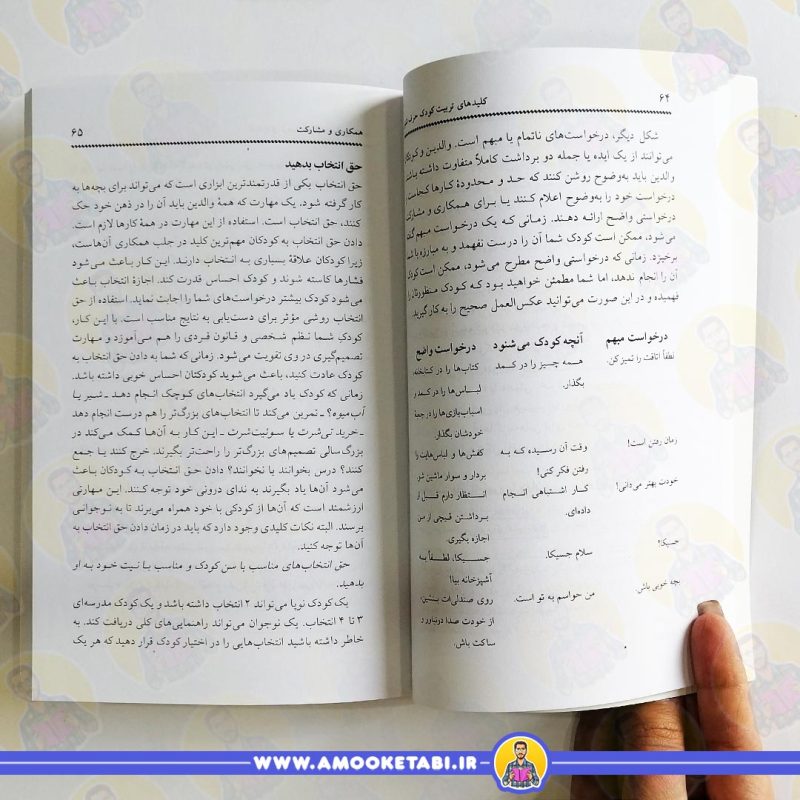 ۶۴
کلیدهای تربیت کودک حرف
شکل دیگر، درخواست‌های ناتمام یا مبهم است. والدین و کودکان
می‌توانند از یک ایده یا جمله دو برداشت کاملاً متفاوت داشته باشند
والدین باید به‌وضوح روشن کنند که حد و محدودهٔ کارها کجاست.
درخواست خود را به‌وضوح اعلام کنند یا برای همکاری و مشارکت
درخواستی واضح ارائه دهند. زمانی که یک درخواست مبهم گفته
می‌شود، ممکن است کودک شما آن را درست نفهمد و به مبارزه با شما
برخیزد. زمانی که درخواستی واضح مطرح می‌شود، ممکن است کودک
آن را انجام ندهد، اما شما مطمئن خواهید بود که کودک منظورتان را
فهمیده و در این صورت می‌توانید عکس‌العمل صحیح را به کار گیرید.
درخواست مبهم آنچه کودک می‌شنود درخواست واضح
لطفاً اتاقت را تمیز کن. همه چیز را در کمد کتاب‌ها را در کتابخانه،
بگذار. لباس‌ها را در کمد و
اسباب‌بازی‌ها را در جعبهٔ
خودشان بگذار
زمان رفتن است! وقت آن رسیده که به کفش‌ها و لباس‌هایت را
رفتن فکر کنی! بردار و سوار ماشین شو.
خودت بهتر می‌دانی! کار اشتباهی انجام انتظار دارم قبل از
داده‌ای. برداشتن قیچی از من
اجازه بگیری.
جسیکا! سلام جسیکا. جسیکا، لطفاً به
آشپزخانه بیا!
بچه خوبی باش. من حواسم به تو است. روی صندلی‌ات بنشین،
از خودت صدا درنیاور و
ساکت باش.
همکاری و مشارکت
۶۵
حق انتخاب بدهید
حق انتخاب یکی از قدرتمندترین ابزاری است که می‌تواند برای بچه‌ها به
کار گرفته شود. یک مهارت که همهٔ والدین باید آن را در ذهن خود حک
کنند، حق انتخاب است. استفاده از این مهارت در همهٔ کارها لازم است.
دادن حق به کودکان مهم‌ترین کلید در جلب همکاری آن‌هاست،
زیرا کودکان علاقهٔ بسیاری به انتخاب دارند. این کار باعث می‌شود
فشارها کاسته شوند و کودک احساس قدرت کند. اجازهٔ انتخاب باعث
می‌شود کودک بیشتر درخواست‌های شما را اجابت نماید. استفاده از حق
انتخاب روشی مؤثر برای دست‌یابی به نتایج مناسب است. با این کار،
کودکِ شما نظم شخصی و قانون فردی را هم می‌آموزد و مهارت
تصمیم‌گیری در وی تقویت می‌شود. زمانی که شما به دادن حق انتخاب به
کودک عادت کنید، باعث می‌شوید کودکتان احساس خوبی داشته باشد.
زمانی که کودک یاد می‌گیرد انتخاب‌های کوچک انجام دهد ـ شیر یا
آب‌میوه؟ ـ تمرین می‌کند تا انتخاب‌های بزرگ‌تر را هم درست انجام دهد
ـ خرید تی‌شرت یا سوئیت‌شرت ـ این کار به آن‌ها کمک می‌کند در
بزرگ‌سالی تصمیم‌های بزرگ‌تر را راحت‌تر بگیرند. خرج کنند یا جمع
کنند؟ درس بخوانند یا نخوانند؟ دادن حق انتخاب به کودکان باعث
می‌شود آن‌ها یاد بگیرند به ندای درونی خود توجه کنند. این مهارتی
ارزشمند است که آن‌ها از کودکی با خود همراه می‌برند تا به نوجوانی
برسند. البته نکات کلیدی وجود دارد که باید در زمان دادن حق انتخاب به
آن‌ها توجه کنید.
حق انتخاب‌های مناسب با سن کودک و مناسب با نیت خود به او
بدهید.
یک کودک نوپا می‌تواند ۲ انتخاب داشته باشد و یک کودک مدرسه‌ای
۳ تا ۴ انتخاب. یک نوجوان می‌تواند راهنمایی‌های کلی دریافت کند. به
خاطر داشته باشید انتخاب‌هایی را در اختیار کودک قرار دهید که هر یک
WWW.AMOOKETABI.IR